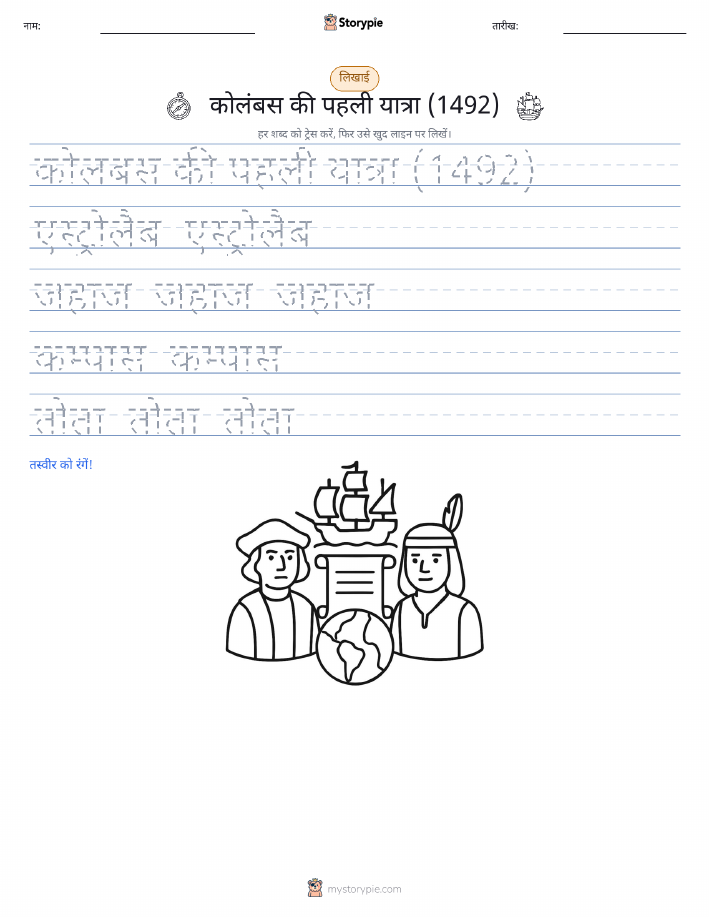 नाम: Storypie तारीख:
लिखाई
कोलंबस की पहली यात्रा (1492)
हर शब्द को ट्रेस करें, फिर उसे खुद लाइन पर लिखें।
कोलंबस की पहली यात्रा (1492)
एस्ट्रोलैब एस्ट्रोलैब
जहाज जहाज जहाज
कम्पास कम्पास
तोता तोता तोता
तस्वीर को रंगें!
mystorypie.com